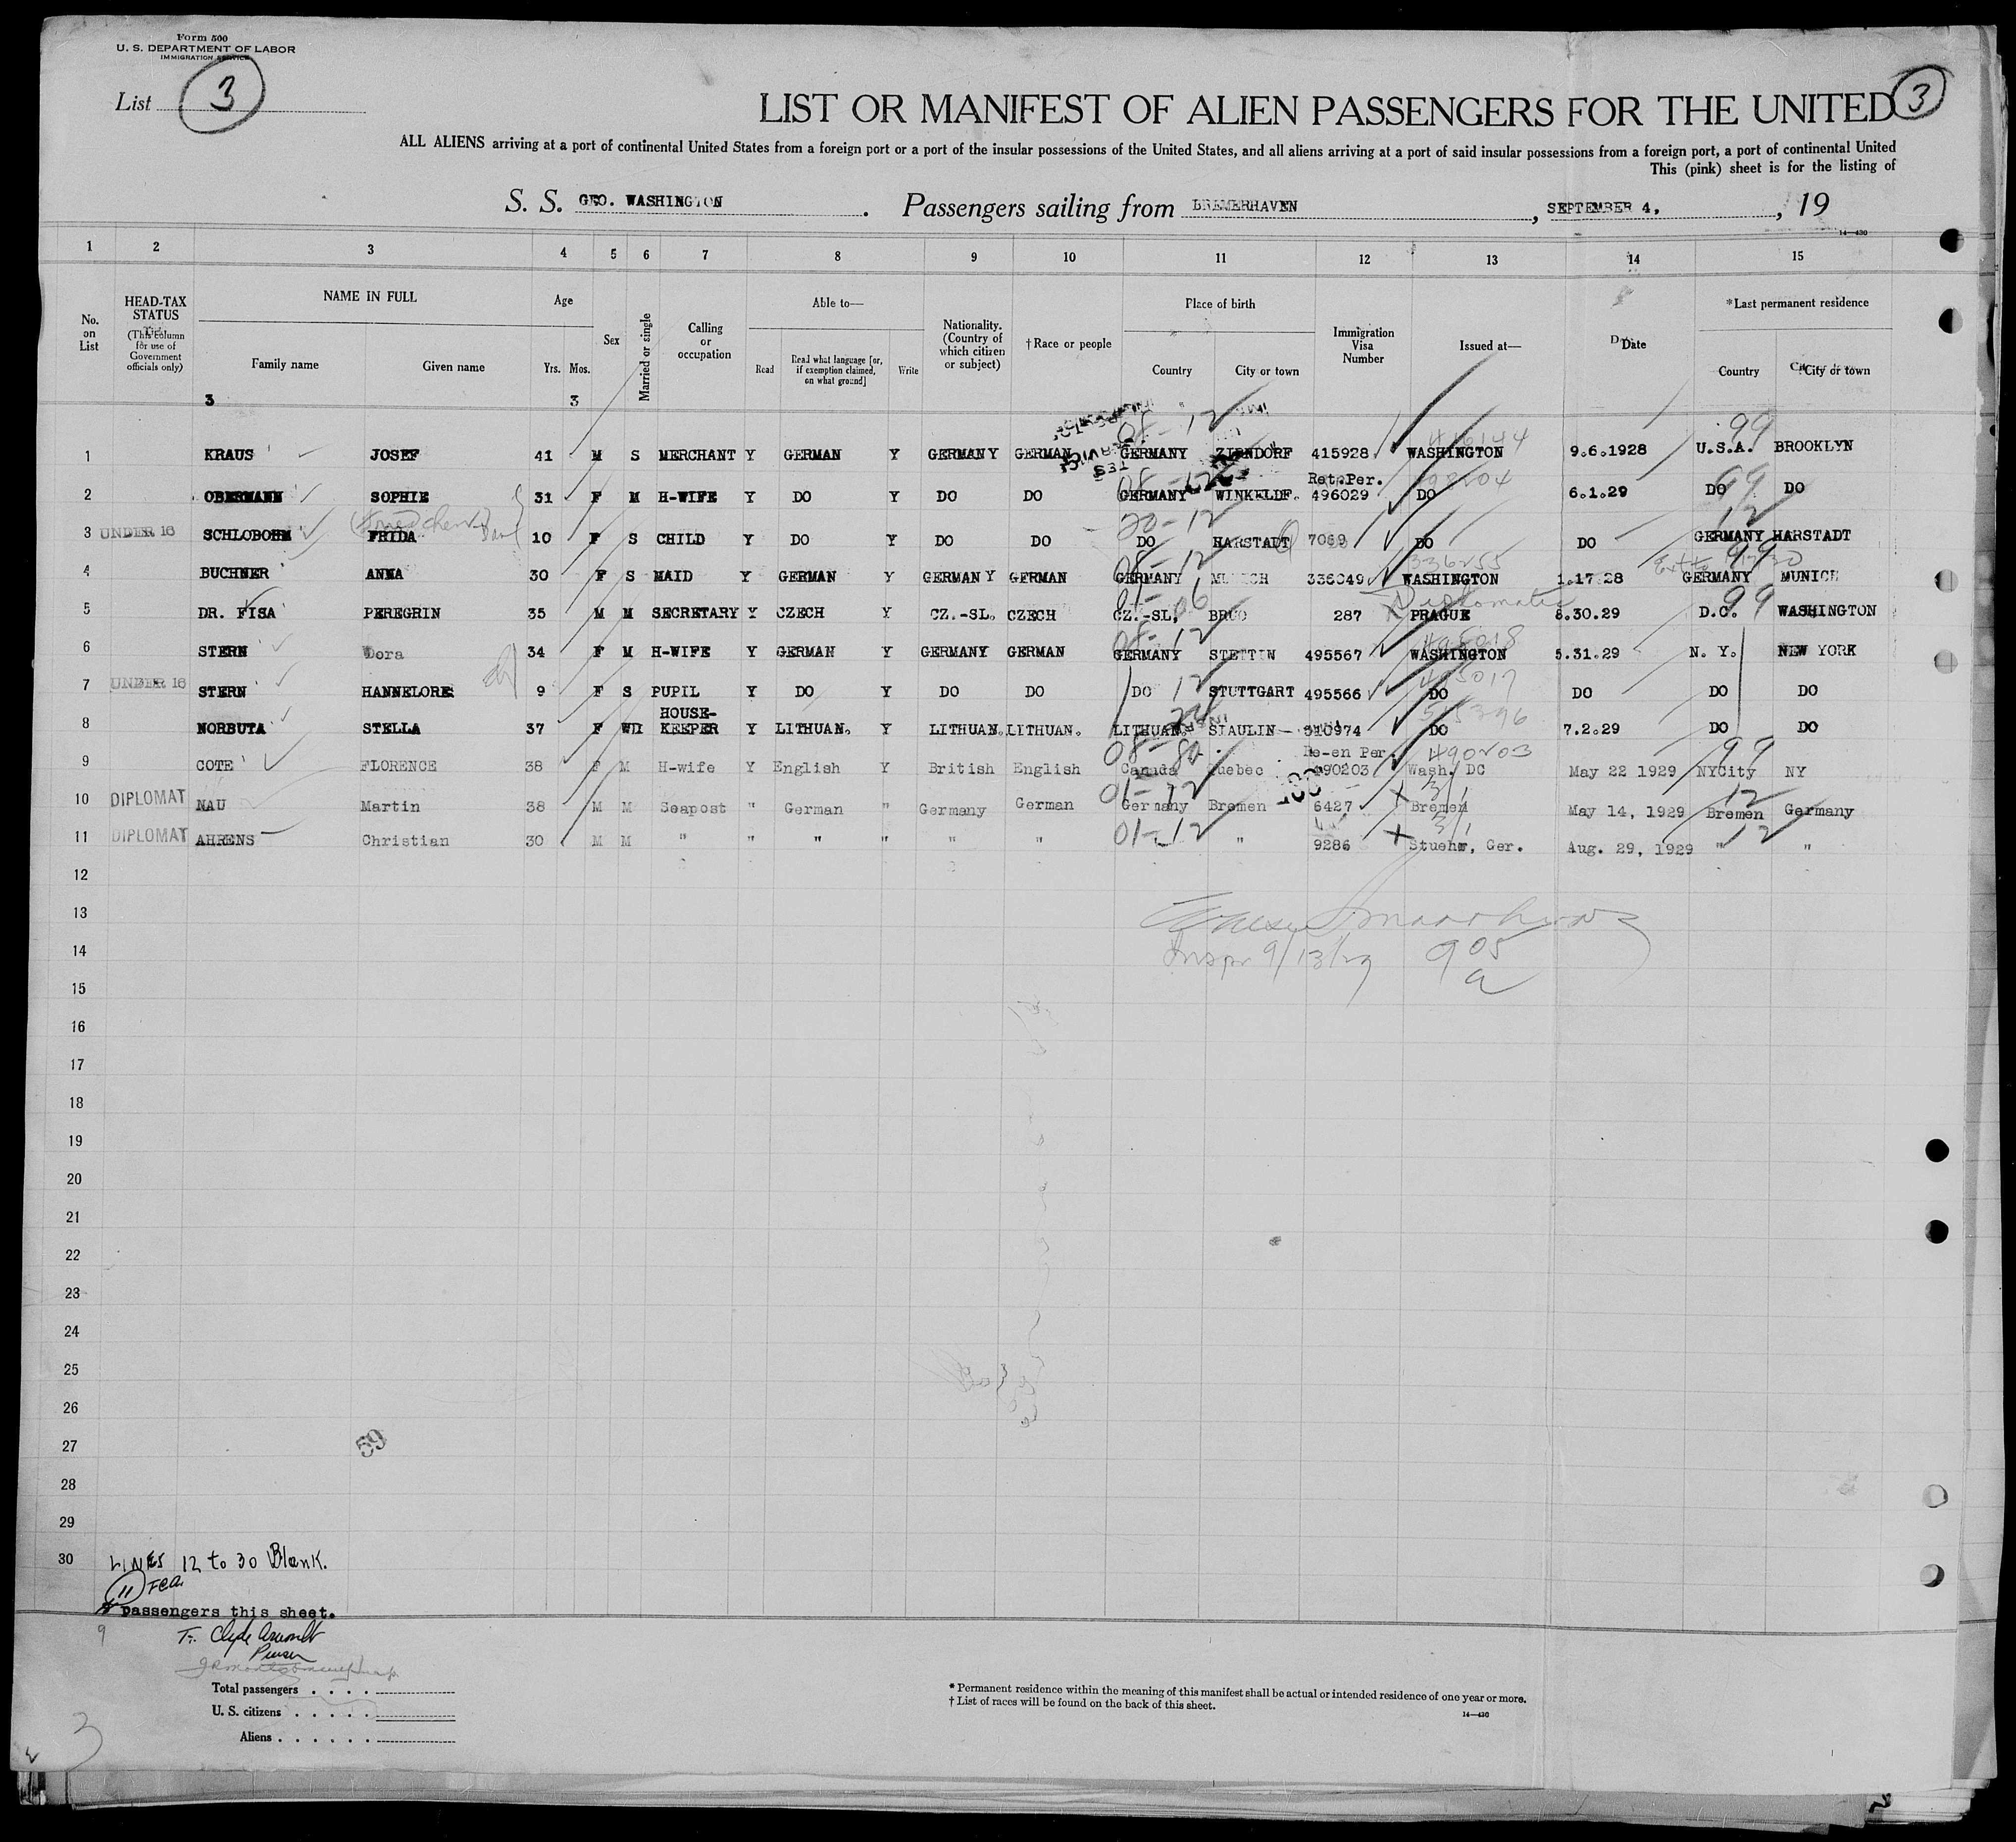 Form 500
U. S. DEPARTMENT OF LABOR
IMMIGRATION SERVICE
List 3
LIST OR MANIFEST OF ALIEN PASSENGERS FOR THE UNITED 3
ALL ALIENS arriving at a port of continental United States from a foreign port or a port of the insular possessions of the United States, and all aliens arriving at a port of said insular possessions from a foreign port, a port of continental United
This (pink) sheet is for the listing of
S. S. GEO. WASHINGTON. Passengers sailing from BREMERHAVEN, SEPTEMBER 4, , 19
14—430
1 2 3 4 5 6 7 8 9 10 11 12 13 14 15
No. on List
HEAD-TAX STATUS (This column for use of Government officials only)
NAME IN FULL Family name Given name
Age Yrs. Mos.
Sex
Married or single
Calling or occupation
Able to— Read Read what language [or, if exemption claimed, on what ground] Write
Nationality. (Country of which citizen or subject)
†Race or people
Place of birth Country City or town
Immigration Visa Number
Issued at—
Date
*Last permanent residence Country City or town
3 3
08-12 416144 99
1 KRAUS JOSEF 41 M S MERCHANT Y GERMAN Y GERMANY GERMAN GERMANY ZIRNDORF 415928 WASHINGTON 9.6.1928 U.S.A. BROOKLYN
Ret.Per.
2 OBERMANN SOPHIE 31 F M H-WIFE Y DO Y DO DO GERMANY WINKELDF. 496029 DO 6.1.29 DO DO
20-12 12
3 UNDER 16 SCHLOBOHM FRIDA 10 F S CHILD Y DO Y DO DO DO HARSTADT 7069 DO DO GERMANY HARSTADT
08-12 336255 99
4 BUCHNER ANNA 30 F S MAID Y GERMAN Y GERMANY GERMAN GERMANY MUNICH 336049 WASHINGTON 1.17.28 GERMANY MUNICH
01-06 Diplomatic 99
5 DR. FISA PEREGRIN 35 M M SECRETARY Y CZECH Y CZ.-SL. CZECH CZ.-SL, 287 PRAGUE 8.30.29 D.C. WASHINGTON
08-12 495018
6 STERN Dora 34 F M H-WIFE Y GERMAN Y GERMANY GERMAN GERMANY STETTIN 495567 WASHINGTON 5.31.29 N. Y. NEW YORK
12 495017
7 UNDER 16 STERN HANNELORE 9 F S PUPIL Y DO Y DO DO DO STUTTGART 495566 DO DO DO DO
8 NORBUTA STELLA 37 F WD HOUSE-KEEPER Y LITHUAN. Y LITHUAN. LITHUAN. LITHUAN. SIAULIN 510974 DO 7.2.29 DO DO
Re-en Per. 490203 99
9 COTE FLORENCE 38 F M H-wife Y English Y British English Canada Quebec 490203 Wash. DC May 22 1929 NYCity NY
01-12 12
10 DIPLOMAT NAU Martin 38 M M Seapost " German " Germany German Germany Bremen 6427 Bremen May 14, 1929 Bremen Germany
01-12 12
11 DIPLOMAT AHRENS Christian 30 M M " " " " " " " 9286 Stuehr, Ger. Aug. 29, 1929 " "
12
13
14 Inspr 9/13/29 905
15 a
16
17
18
19
20
21
22
23
24
25
26
27 59
28
29
30 LINES 12 to 30 Blank.
11
passengers this sheet.
9
Purser
Total passengers
U. S. citizens
Aliens
3
* Permanent residence within the meaning of this manifest shall be actual or intended residence of one year or more.
† List of races will be found on the back of this sheet.
14—430